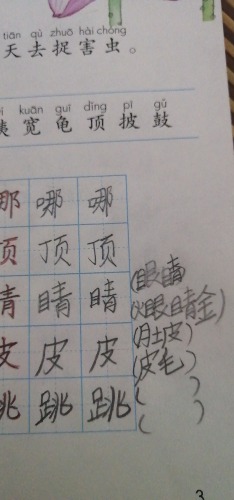 tiān qù zhuō hài chóng
天去捉害虫。
kuān guī dǐng pī gǔ
宽龟顶披鼓
那哪哪
顶顶顶
睛睛睛
皮皮皮
跳跳跳
(眼睛
(火眼睛金)
(月土皮)
(皮毛)
( )
( )
3